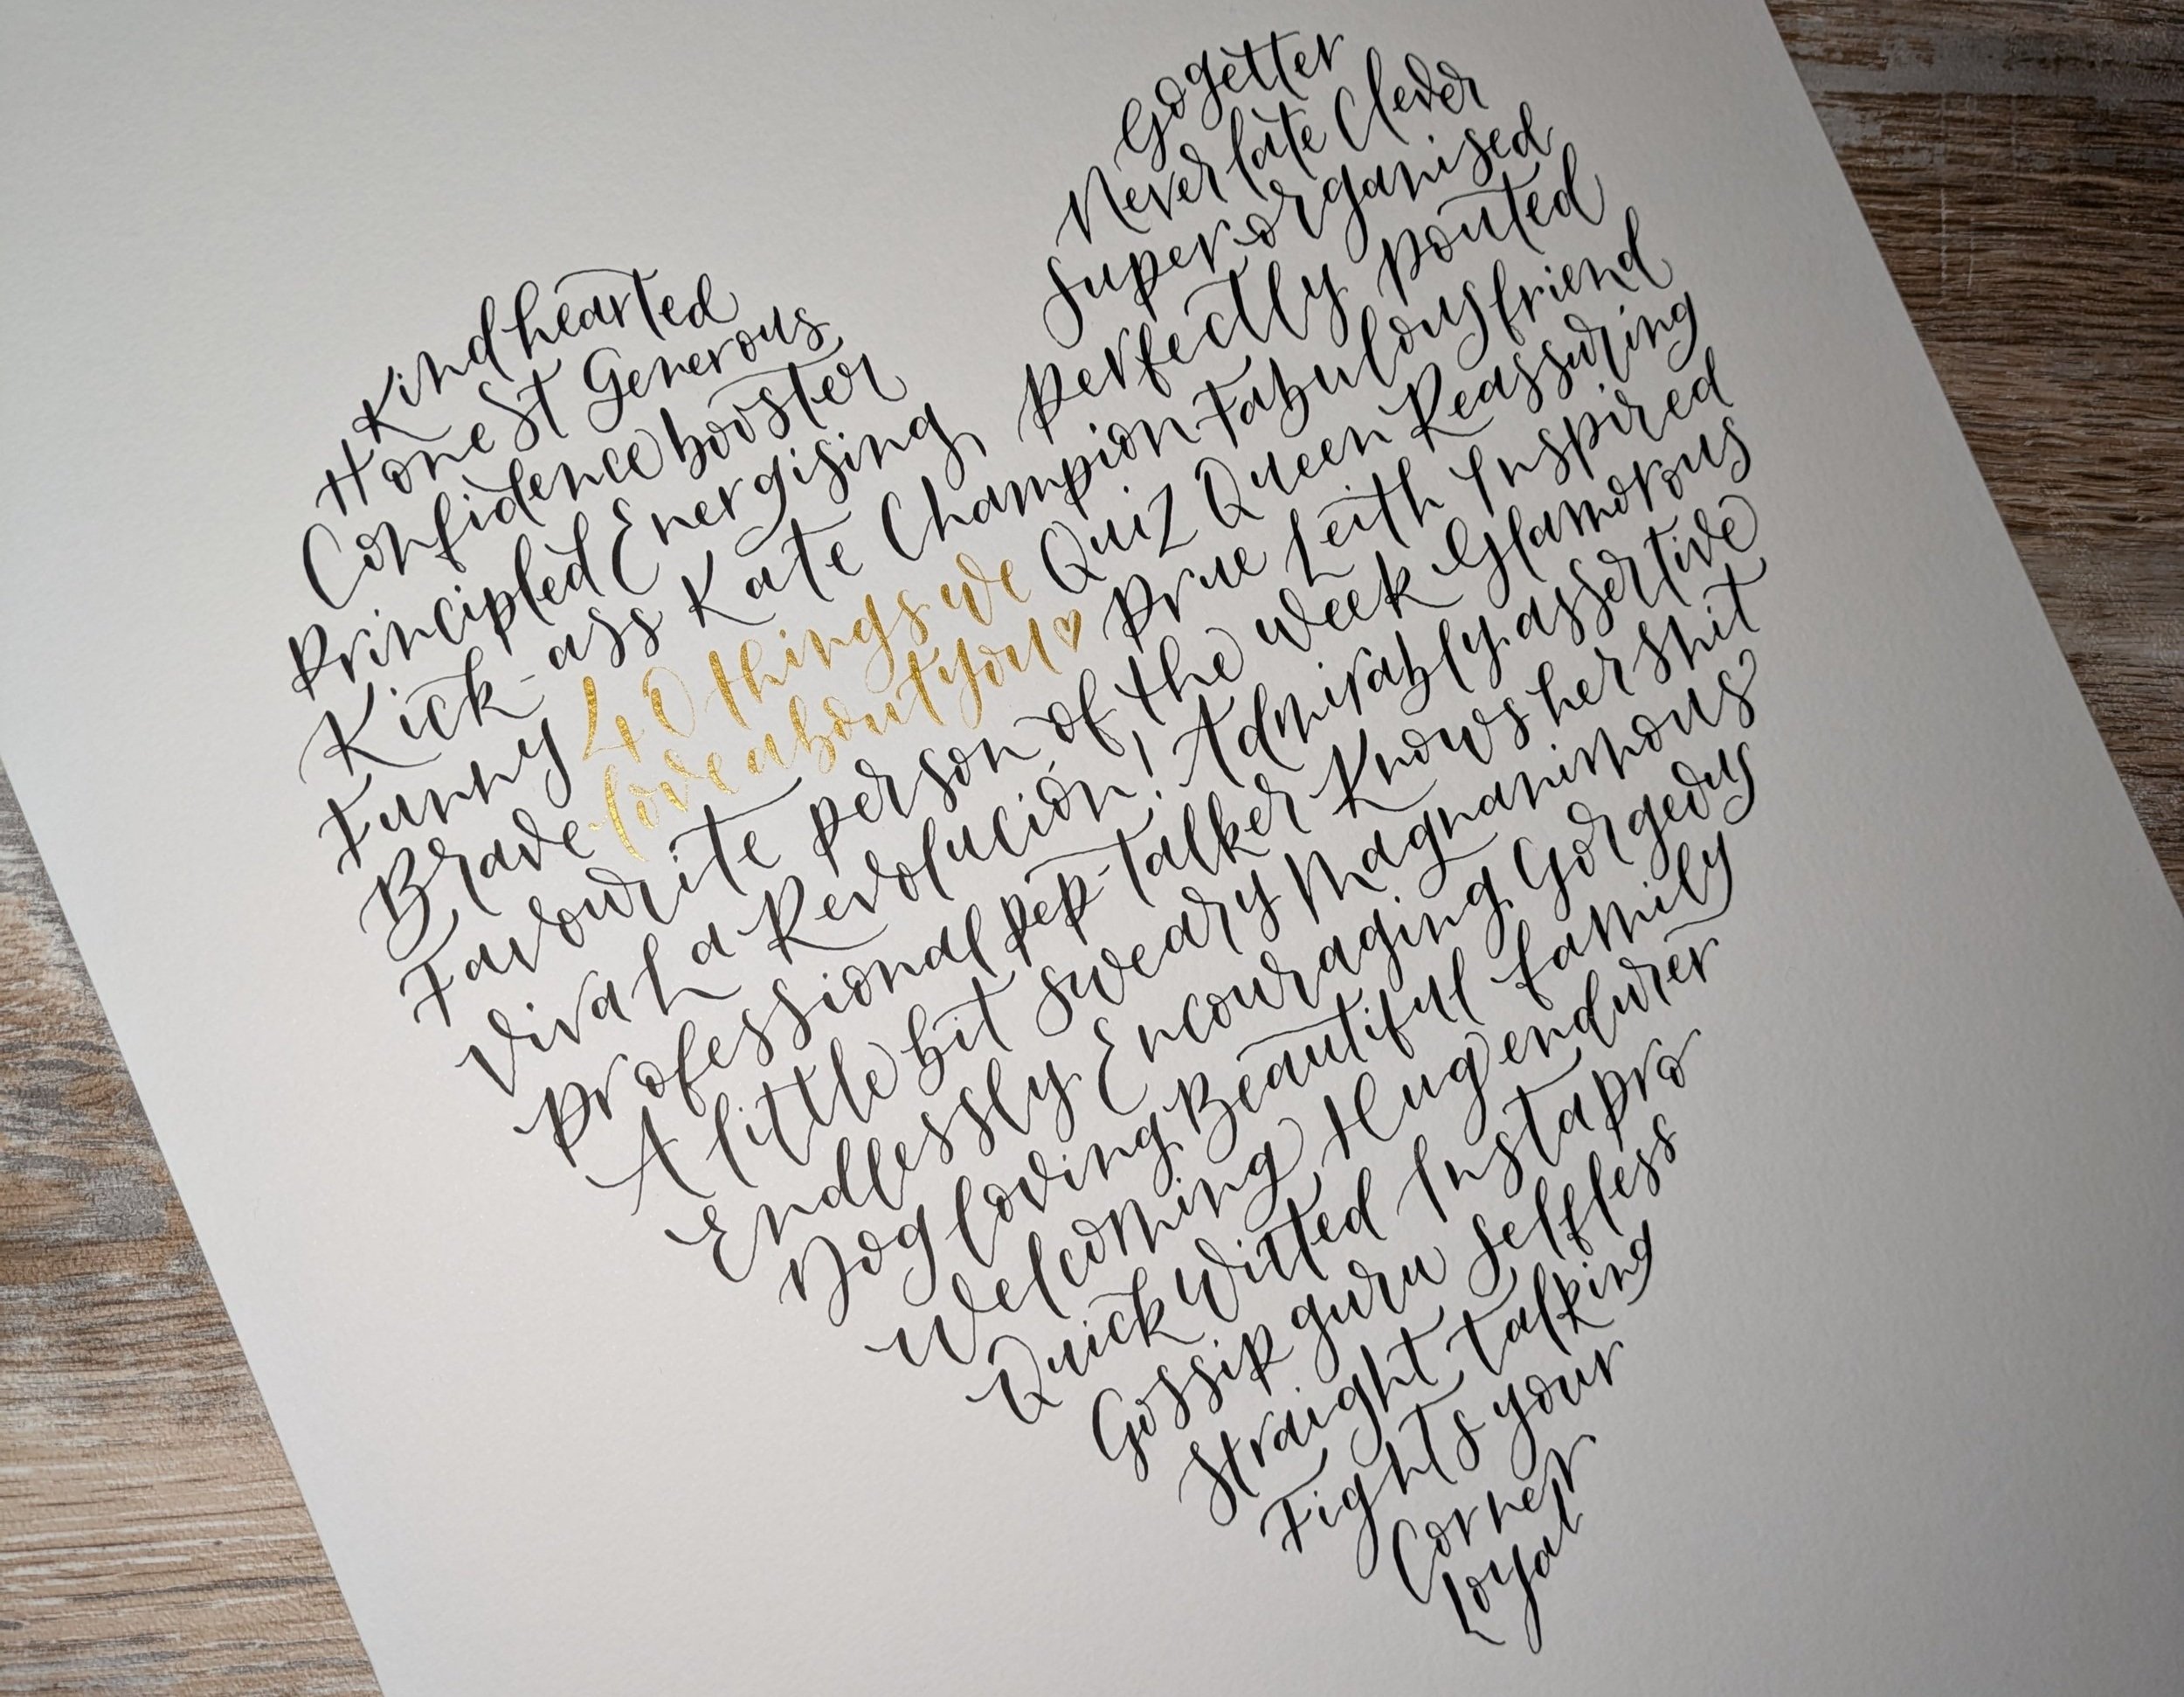 Kindhearted
Gogetter
Honest Generous
Never late Clever
Confidence booster
Super-organised
Principled Energising
Perfectly pouted
Kick-ass Kate Champion Fabulous friend
Funny 40 things we Quiz Queen Reassuring
Brave love about you♡ Prue Leith Inspired
Favourite person of the week Glamorous
Viva La Revolución! Admirably assertive
Professional pep-talker Knows her shit
A little bit sweary Magnanimous
Endlessly Encouraging Gorgeous
Dog loving Beautiful family
Welcoming Hug endurer
Quick witted Insta pro
Gossip guru Selfless
Straight talking
Fights your
Corner
Loyal